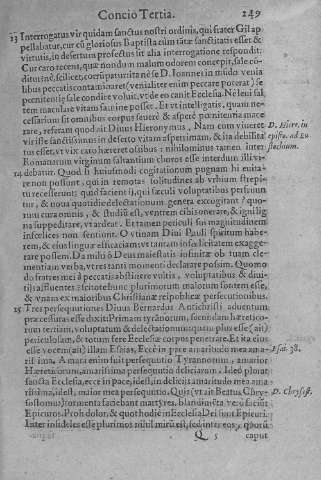 Concio Tertia. 249
13 Interrogatus vir quidam sanctus nostri ordinis, qui frater Gil ap
pellabatur, cur cũ gloriosus Baptista cùm tãtæ sanctitatis esset &
virtutis, in desertum profectus sit alia interrogatione respondit.
Cur caro recens, quæ nondum malum odorem concepit, sale cõ-
ditur: nẽ, scilicet, corrũpatur: ita nè se D. Ioannes in mũdo venia
libus peccatis contaminaret (venialiter enim peccare poterat) se
penitentiæ sale condire voluit, vt de eo canit Ecclesia. Ne leui sal
tem maculare vitam famine posset. Et vt intelligatis, quam ne-
cessarium sit omnibus corpus seuerè & asperè pœnitentia mace
rare, referam quod ait Diuus Hieronymus, Nam cum viueret
vir iste sanctissimus in deserto vitam asperrimam, & ita debilita
tus esset, vt vix caro hæreret ossibus: nihilominus tamen inter
Romanarum virginum saltantium choros esse interdum illi vi-
D. Hiero. in
epist. ad Eu
stochium.
14 debatur. Quod si huiusmodi cogitationem pugnam hi euita-
re non possunt, qui in remotas solitudines ab vrbium strepi-
tu recesserunt; quid facient ij, qui sæculi voluptatibus perfruun
tur, & noua quotidie delectationum genera excogitant? quo-
rum cura omnis, & studiũ est, ventrem cibis onerare, & igni lig
na suppeditare, vt ardeat. Et tamen periculi sui magnitudinem
infœlices non sentiunt. O vtinam Diui Pauli spiritum habe-
rem, & eius linguæ efficaciam; vt tantam infœlicitatem exagge-
rare possem. Da mihi ô Deus maiestatis infinitæ ob tuam cle-
mentiam verba, vt res tanti momenti declarare possim. Quomo
do fratres mei à peccatis abstinere vultis, voluptatibus & diui-
tijs affluentes? scitote hunc plurimorum malorum fontem esse,
& vnam ex maioribus Christianæ reipublicæ persecutionibus.
15 Tres persequutiones Diuus Bernardus Antichristi aduentum
præcessuras esse dixit: Primam tyrãnorum, secundam hæretico-
rum, tertiam, voluptatum & delectationum: quam plus esse (ait)
periculosam, & totum fere Ecclesiæ corpus penetrare. Et ita eius
esse vocem (ait) illam Esaiæ, Ecce in pace amaritudo mea ama-
rissima. Amara enim fuit persequutio Tyrannorum, amarior
Isai. 38.
Hæreticorum, amarissima persequutio deliciarum. Ideò plorat
sancta Ecclesia, ecce in pace, idest, in delicijs amaritudo mea ama
rissima, idest, maior mea persequutio. Quia (vt ait Beatus Chry-
sostomus) tormenta faciebant martyres, blandimẽta verò faciũt
D. Chrysost.
Epicuros. Proh dolor, & quot hodie in Ecclesia Dei sunt Epicuri.
Inter infideles esse plurimos nihil mirũ est, sed inter eos, quorũ
Q 5 caput